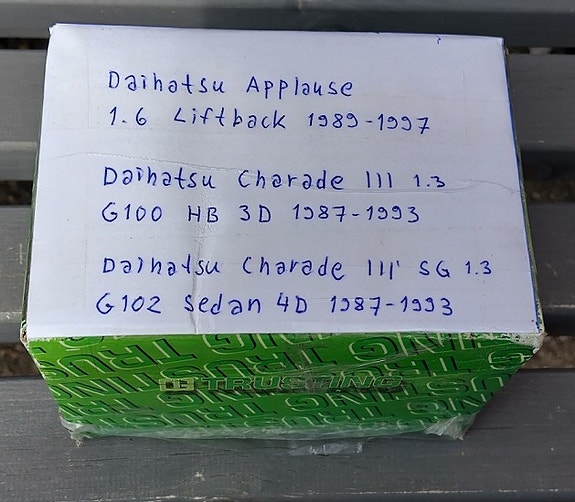 Daihatsu Applause
1.6 Liftback 1989-1997
Daihatsu Charade III 1.3
G100 HB 3D 1987-1993
Daihatsu Charade III SG 1.3
G102 Sedan 4D 1987-1993
TRUSTING